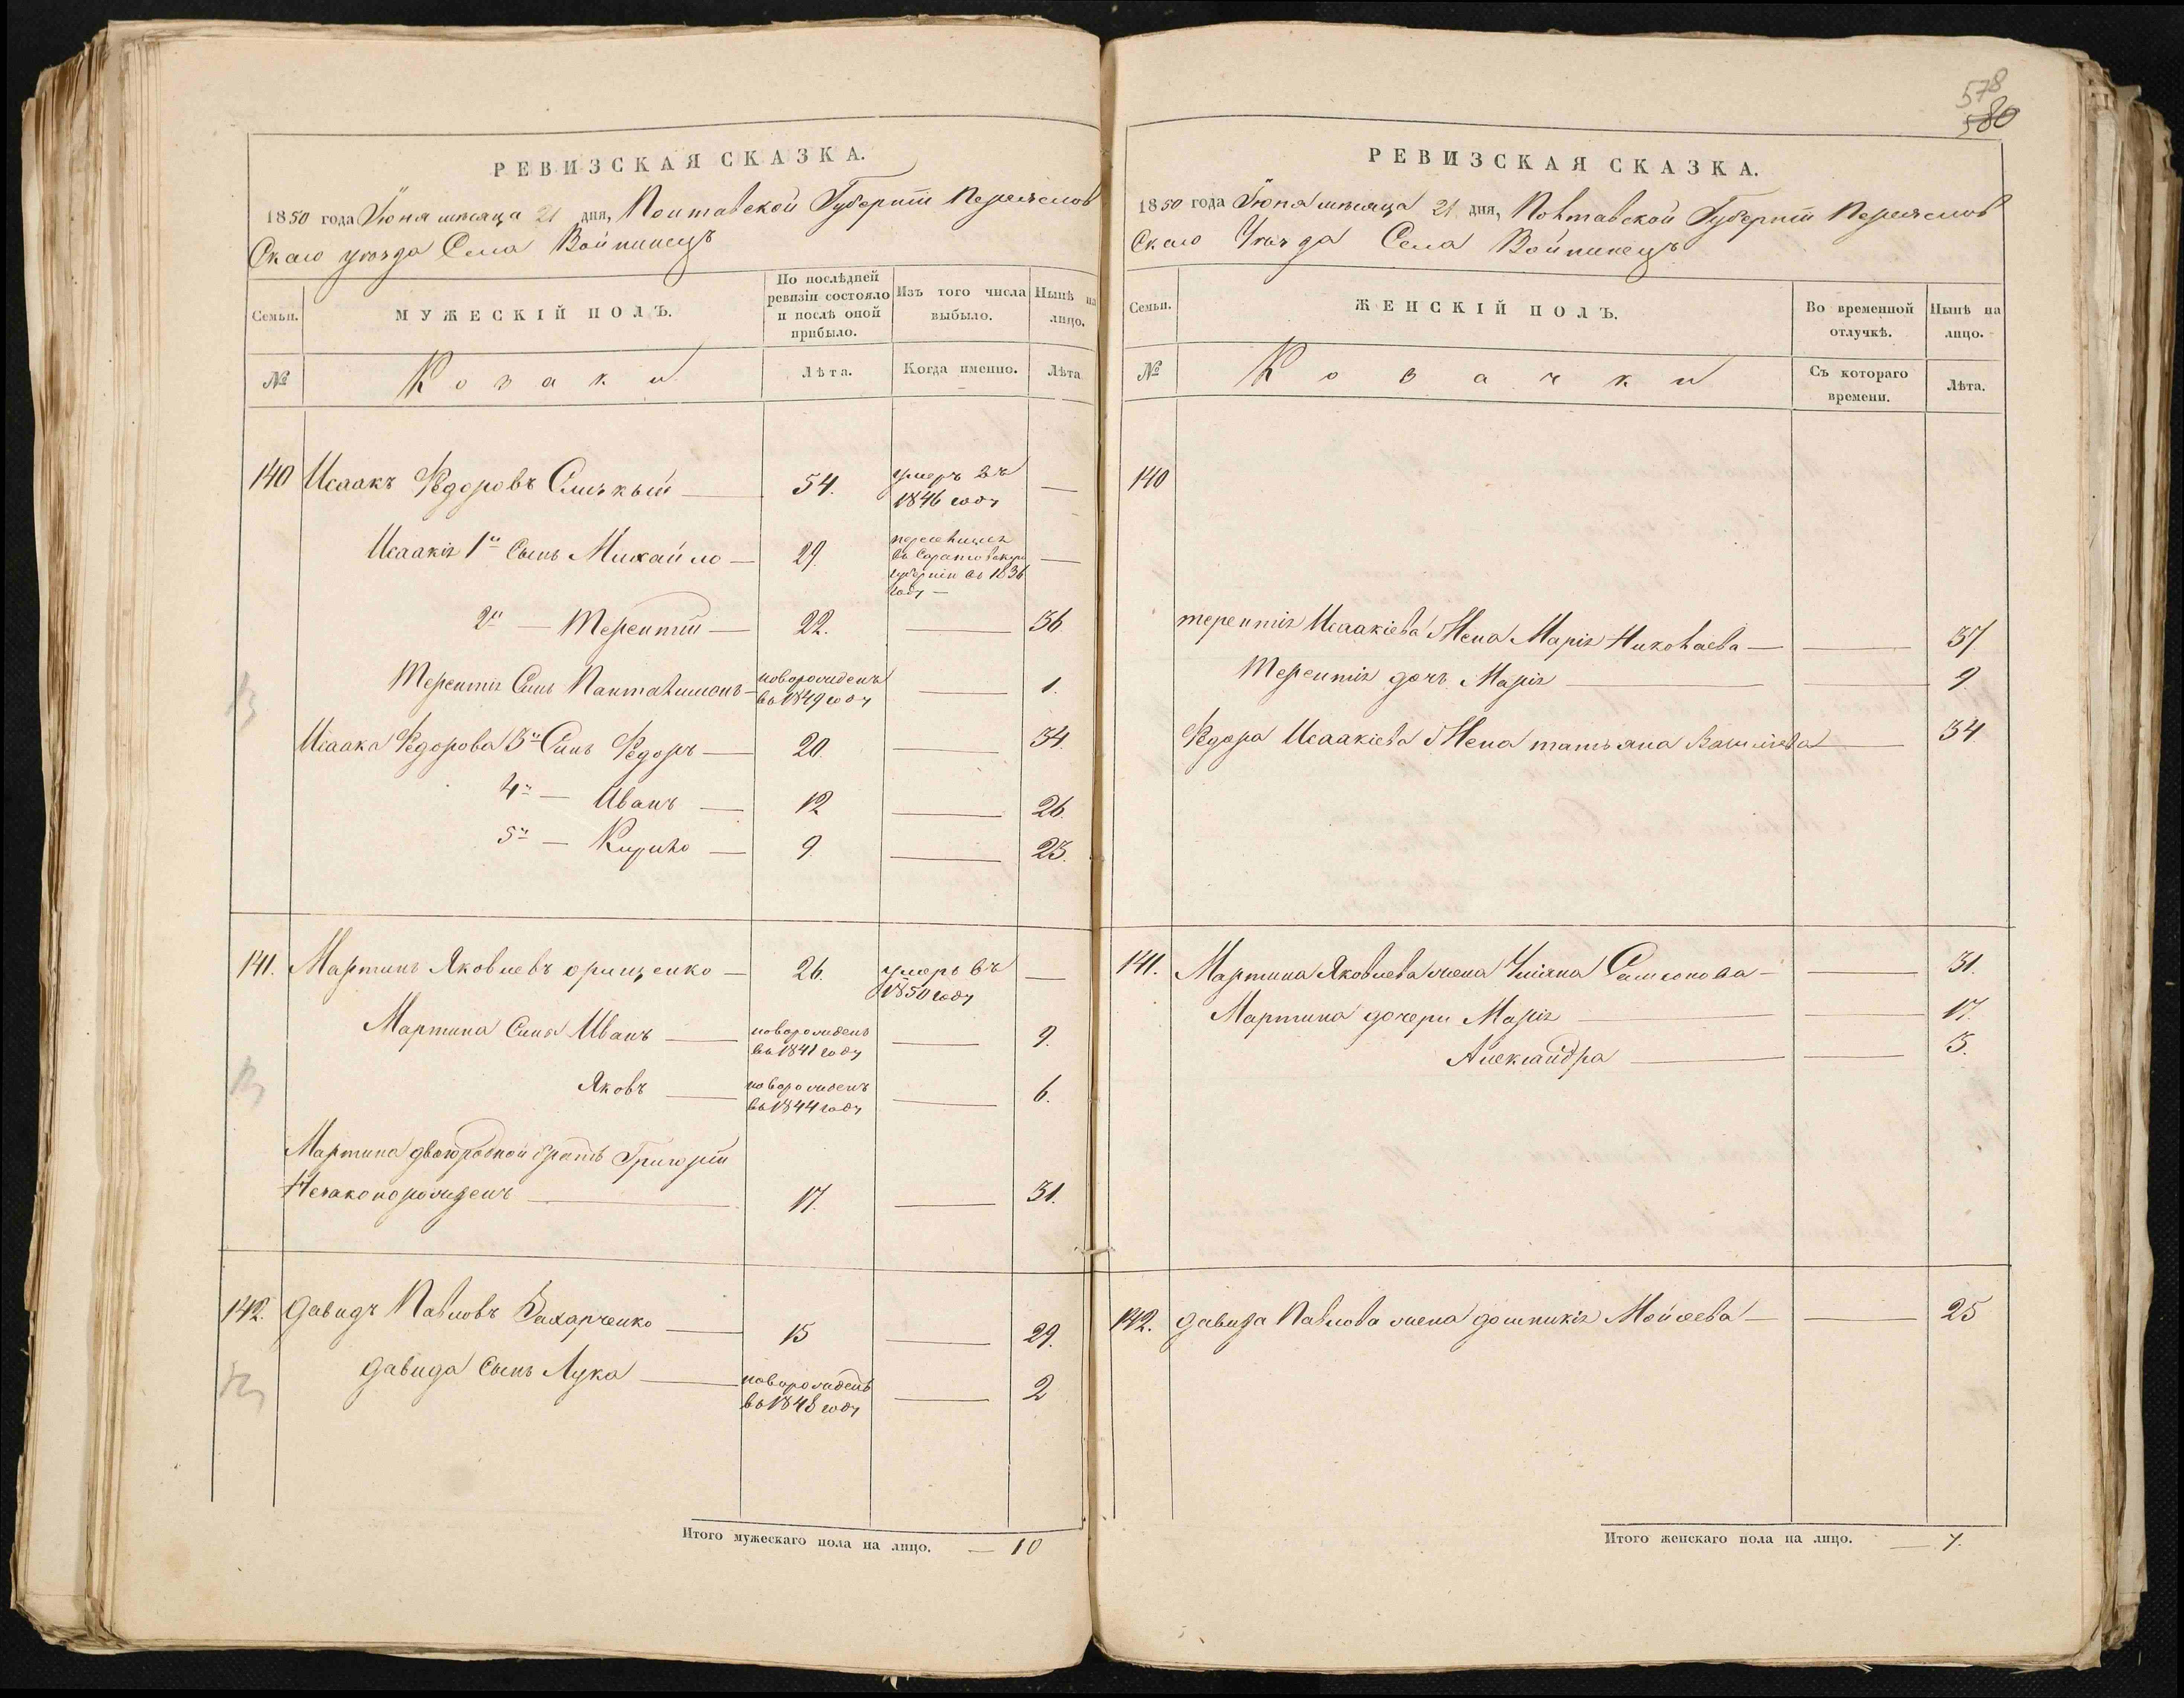 578
580
РЕВИЗСКАЯ СКАЗКА.
1850 года Іюня мѣсяца 21 дня, Полтавской Губерніи Переяслов
Скаго уѣзда Села Войтинецъ
Семьи.
МУЖЕСКІЙ ПОЛЪ.
По послѣдней ревизіи состояло и послѣ оной прибыло.
Изъ того числа выбыло.
Нынѣ на лицо.
№
Козаки
Лѣта.
Когда именно.
Лѣта
140 Исаакъ Федоровъ 54. умеръ въ 1846 году —
Исаакія 1й Сынъ Михайло — 29. переселился въ Саратовскую губернію въ 1836 году — —
2й — Терентій — 22. — 36.
Терентія Сынъ Пантелимонъ — новорожденъ въ 1849 году — 1.
Исаака Федорова 3й Сынъ Федоръ — 20. — 34.
4й — Иванъ — 12 — 26.
5й — Кирило — 9. — 23.
141. Мартинъ Яковлевъ — 26. умеръ въ 1850 году —
Мартина Сынъ Иванъ — новорожденъ въ 1841 году — 9.
Яковъ — новорожденъ въ 1844 году — 6.
Мартина двоюродной братъ Григорій
Незаконорожденъ — 17. — 31.
142. Давидъ Павловъ Захарченко — 15 — 29.
Давида Сынъ Лука — новорожденъ въ 1848 году — 2
Итого мужескаго пола на лицо. — 10
РЕВИЗСКАЯ СКАЗКА.
1850 года Іюня мѣсяца 21 дня, Полтавской Губерніи Переяслов
Скаго Уѣзда Села Войтинецъ
Семьи.
ЖЕНСКІЙ ПОЛЪ.
Во временной отлучкѣ.
Нынѣ на лицо.
№
Козачки
Съ котораго времени.
Лѣта.
140
Терентія Исаакіева Жена Марія Николаева — — 37.
Терентія дочь Марія — — 9.
Федора Исаакіева Жена Татьяна Васильева — 34
141. Мартина Яковлева жена Уліяна Самсонова — — 31.
Мартина дочери Марія — — 17.
Александра — — 3.
142. Давида Павлова жена Домникія Мойсеева — — 25
Итого женскаго пола на лицо. — 7.